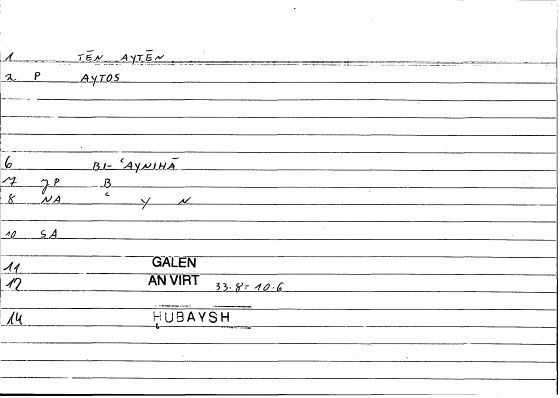 1 TĒN AYTĒN
2 P AYTOS
6 BI- ʿAYNIHĀ
7 JP B
8 NA ʿ Y N
10 SA
11 GALEN
12 AN VIRT 33.8 = 10.6
14 ḤUBAYSH